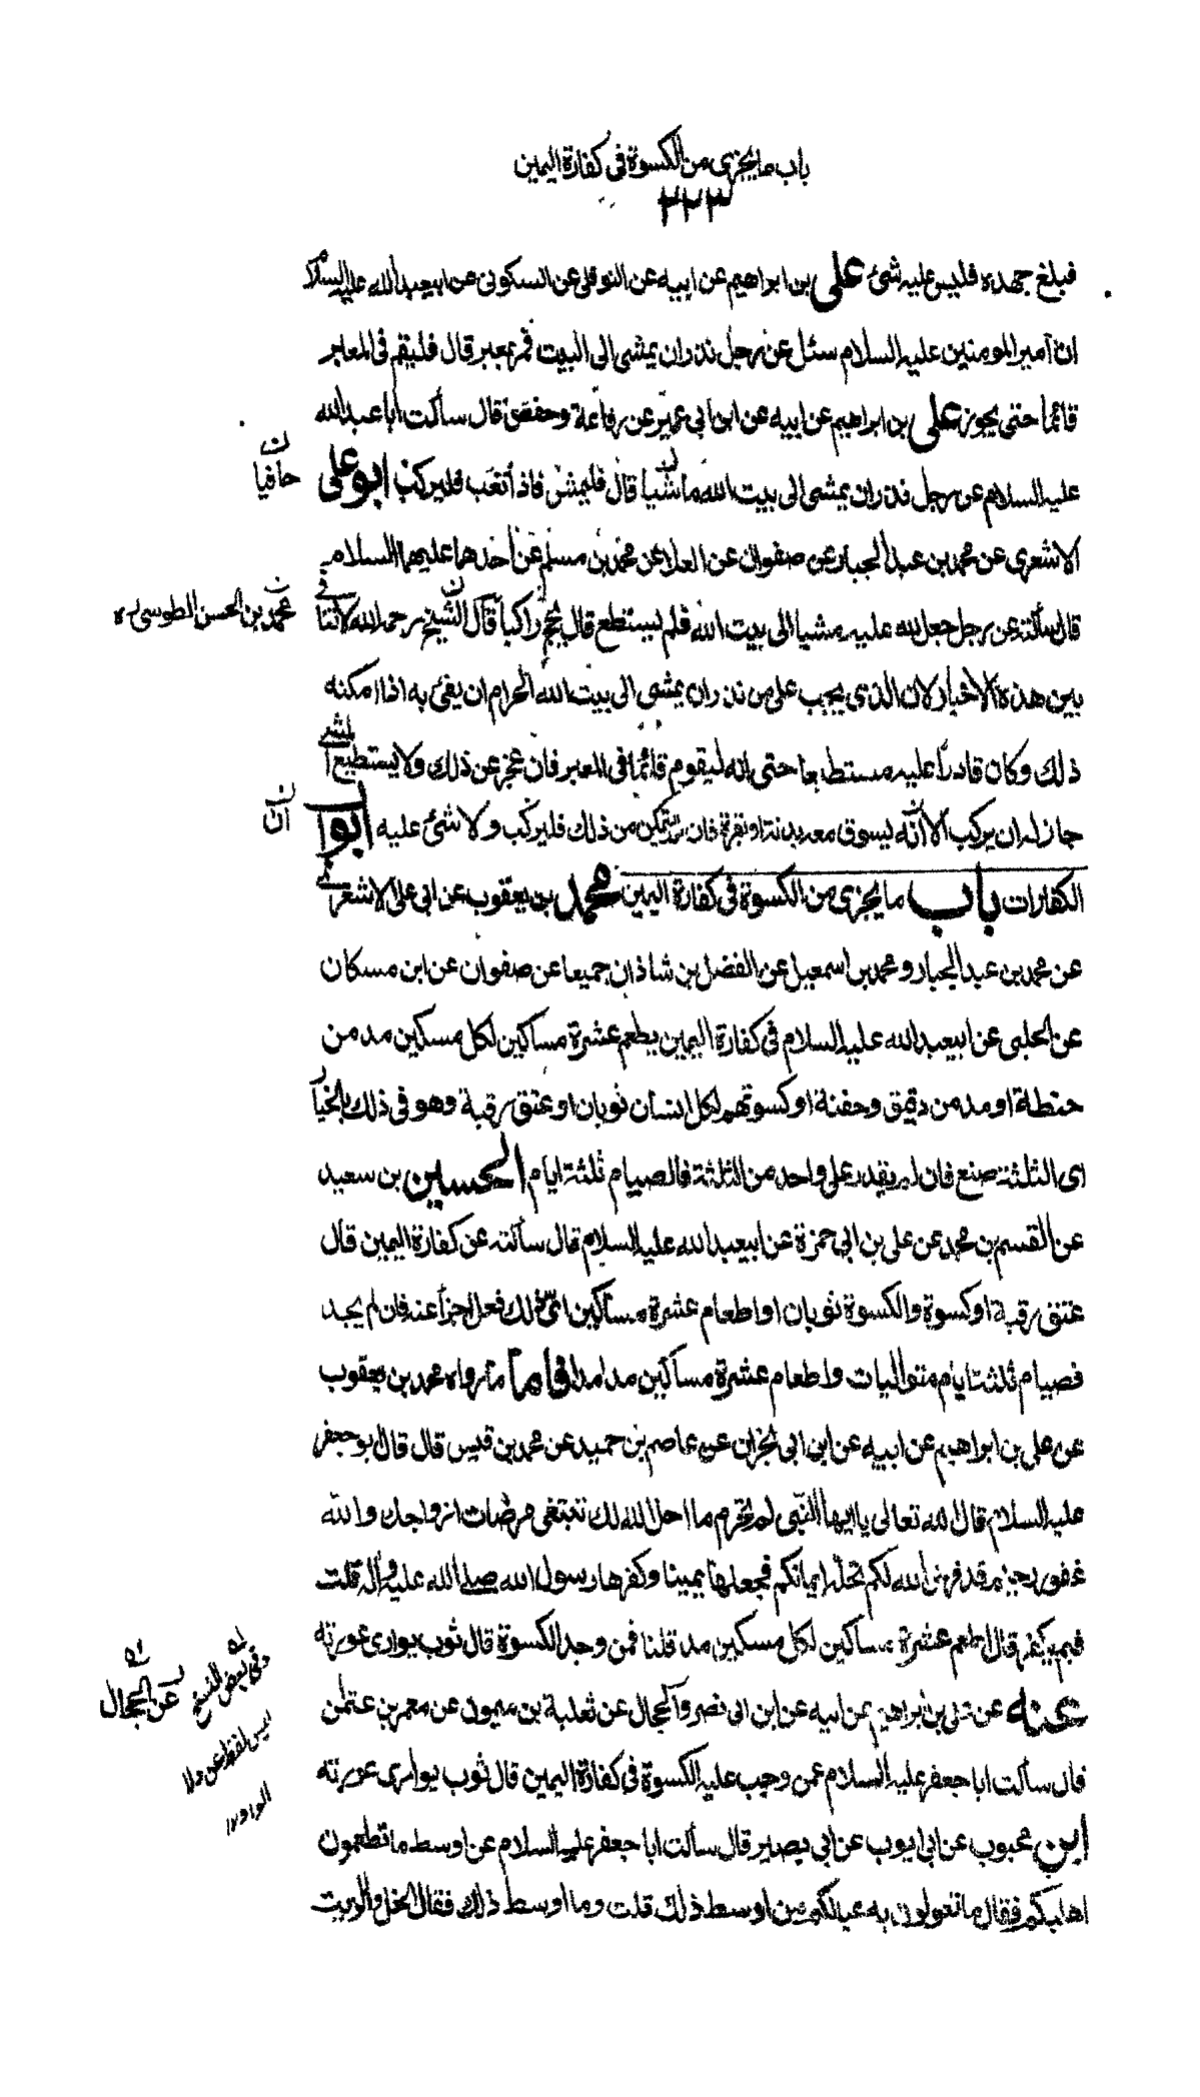 باب ما يجزى من الكسوة فى كفارة اليمين
٣٢٣
فبلغ جهده فليس عليه شئ على بن ابراهيم عن ابيه عن النوفلى عن السكونى عن ابيعبد الله عليه السلام
ان امير المومنين عليه السلام سئل عن رجل نذر ان يمشى الى البيت فمر بمعبر قال فليقم فى المعابر
قائما حتى يجوز على بن ابراهيم عن ابيه عن ابن ابى عمير عن رفاعة وحفص قال سألت ابا عبد الله
عليه السلام عن رجل نذر ان يمشى الى بيت الله ماشيا قال فليمش فاذا تعب فليركب ابو على
ن حافيا
الاشعرى عن محمد بن عبد الجبار عن صفوان عن العلا عن محمد بن مسلم عن احدهما عليهما السلام
قال سألته عن رجل جعل لله عليه مشيا الى بيت الله فلم يستطع قال يحج راكبا قال الشيخ رحمه الله لا تنافى
ن محمد بن الحسن الطوسى ره
بين هذه الاخبار لان الذى يجب على من نذر ان يمشى الى بيت الله الحرام ان يفئ به اذا امكنه
ذلك وكان قادرا عليه مستطيعا حتى انه ليقوم قائما فى المعبر فان عجز عن ذلك ولا يستطيع المشى
جاز له ان يركب الا انه يسوق معه بدنة او بقرة فان لم يتمكن من ذلك فليركب ولا شئ عليه ابواب
ن ان
الكفارات باب ما يجزى من الكسوة فى كفارة اليمين محمد بن يعقوب عن ابى على الاشعرى
عن محمد بن عبد الجبار ومحمد بن اسمعيل عن الفضل بن شاذان جميعا عن صفوان عن ابن مسكان
عن الحلبى عن ابيعبد الله عليه السلام فى كفارة اليمين يطعم عشرة مساكين لكل مسكين مد من
حنطة او مد من دقيق وحفنة او كسوتهم لكل انسان ثوبان او عتق رقبة وهو فى ذلك بالخيار
اى الثلثة صنع فان لم يقدر على واحد من الثلثة فالصيام ثلثة ايام الحسين بن سعيد
عن القسم بن محمد عن على بن ابى حمزة عن ابيعبد الله عليه السلام قال سألته عن كفارة اليمين قال
عتق رقبة او كسوة والكسوة ثوبان او اطعام عشرة مساكين اى ذلك فعل اجزأ عنه فان لم يجد
فصيام ثلثة ايام متواليات واطعام عشرة مساكين مدا مدا فاما ما رواه محمد بن يعقوب
عن على بن ابراهيم عن ابيه عن ابن ابى نجران عن عاصم بن حميد عن محمد بن قيس قال قال ابو جعفر
عليه السلام قال الله تعالى يا ايها النبى لم تحرم ما احل الله لك تبتغى مرضات ازواجك والله
غفور رحيم قد فرض الله لكم تحلة ايمانكم فجعلها يمينا وكفرها رسول الله صلى الله عليه واله قلت
فبم يكفر قال اطعم عشرة مساكين لكل مسكين مد قلنا فمن وجد الكسوة قال ثوب يوارى عورته
عنه عن على بن ابراهيم عن ابيه عن ابن ابى نصر والحجال عن ثعلبة بن ميمون عن معمر بن عثمان
ن عن الحجال
وفى بعض النسخ
ليس لفظ عن ولا
الواو
قال سألت ابا جعفر عليه السلام عمن وجب عليه الكسوة فى كفارة اليمين قال ثوب يوارى عورته
ابن محبوب عن ابى ايوب عن ابى بصير قال سألت ابا جعفر عليه السلام عن اوسط ما تطعمون
اهليكم فقال ما تقولون به عيالكم من اوسط ذلك قلت وما اوسط ذلك فقال الخل والزيت